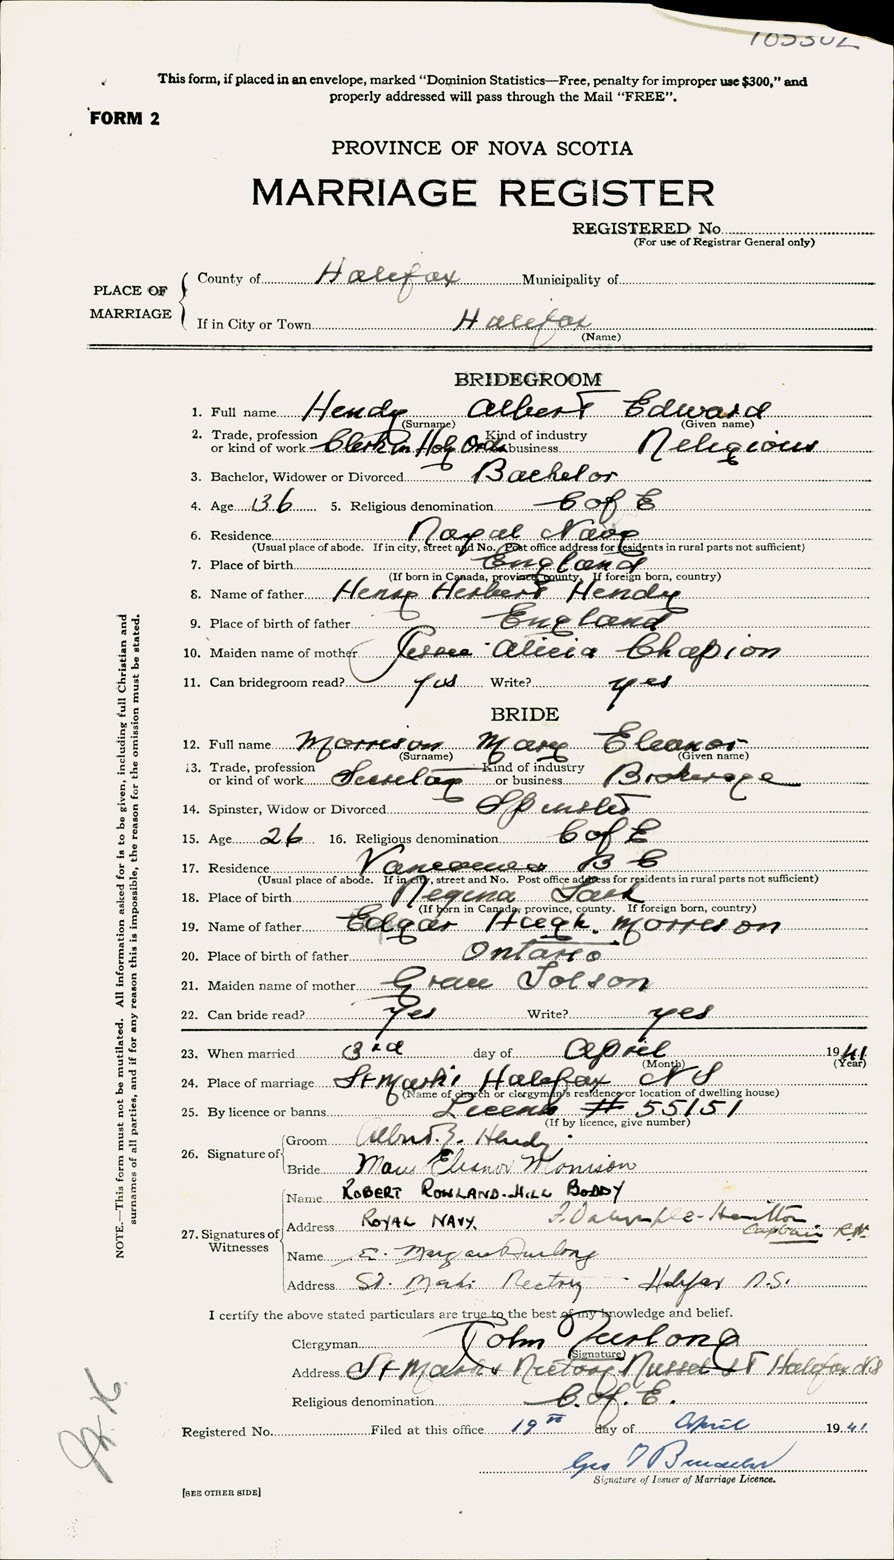 This form, if placed in an envelope, marked "Dominion Statistics—Free, penalty for improper use $300," and
properly addressed will pass through the Mail "FREE".
FORM 2
PROVINCE OF NOVA SCOTIA
MARRIAGE REGISTER
REGISTERED No.
(For use of Registrar General only)
PLACE OF MARRIAGE
County of Halifax Municipality of
If in City or Town Halifax
(Name)
BRIDEGROOM
1. Full name Hendy Albert Edward
(Surname) (Given name)
2. Trade, profession or kind of work Clerk in Holy Orders Kind of industry or business Religious
3. Bachelor, Widower or Divorced Bachelor
4. Age 36 5. Religious denomination C of E
6. Residence Royal Navy
(Usual place of abode. If in city, street and No. Post office address for residents in rural parts not sufficient)
7. Place of birth England
(If born in Canada, province, county. If foreign born, country)
8. Name of father Henry Herbert Hendy
9. Place of birth of father England
10. Maiden name of mother Alicia Chapion
11. Can bridegroom read? yes Write? yes
BRIDE
12. Full name Morrison Mary Eleanor
(Surname) (Given name)
13. Trade, profession or kind of work Secretary Kind of industry or business Brokerage
14. Spinster, Widow or Divorced Spinster
15. Age 26 16. Religious denomination C of E
17. Residence Vancouver B C
(Usual place of abode. If in city, street and No. Post office address for residents in rural parts not sufficient)
18. Place of birth Regina Sask
(If born in Canada, province, county. If foreign born, country)
19. Name of father Edgar Hugh Morrison
20. Place of birth of father Ontario
21. Maiden name of mother Grace Tolson
22. Can bride read? yes Write? yes
23. When married 3rd day of April 1941
(Month) (Year)
24. Place of marriage St Marks Halifax N S
(Name of church or clergyman's residence or location of dwelling house)
25. By licence or banns License # 55151
(If by licence, give number)
26. Signature of
Groom Albert E. Hendy
Bride Mary Eleanor Morrison
27. Signatures of Witnesses
Name ROBERT ROWLAND-HILL BODDY
Address ROYAL NAVY. F Dalrymple-Hamilton
Captain R.N.
Name E. Margaret Furlong
Address St. Marks Rectory - Halifax N.S.
I certify the above stated particulars are true to the best of my knowledge and belief.
Clergyman John Furlong
(Signature)
Address St Marks Rectory Russel St Halifax N S
Religious denomination C. of E.
Registered No. Filed at this office 19th day of April 1941
Geo
Signature of Issuer of Marriage Licence.
[SEE OTHER SIDE]
NOTE.—This form must not be mutilated. All information asked for is to be given, including full Christian and
surnames of all parties, and if for any reason this is impossible, the reason for the omission must be stated.